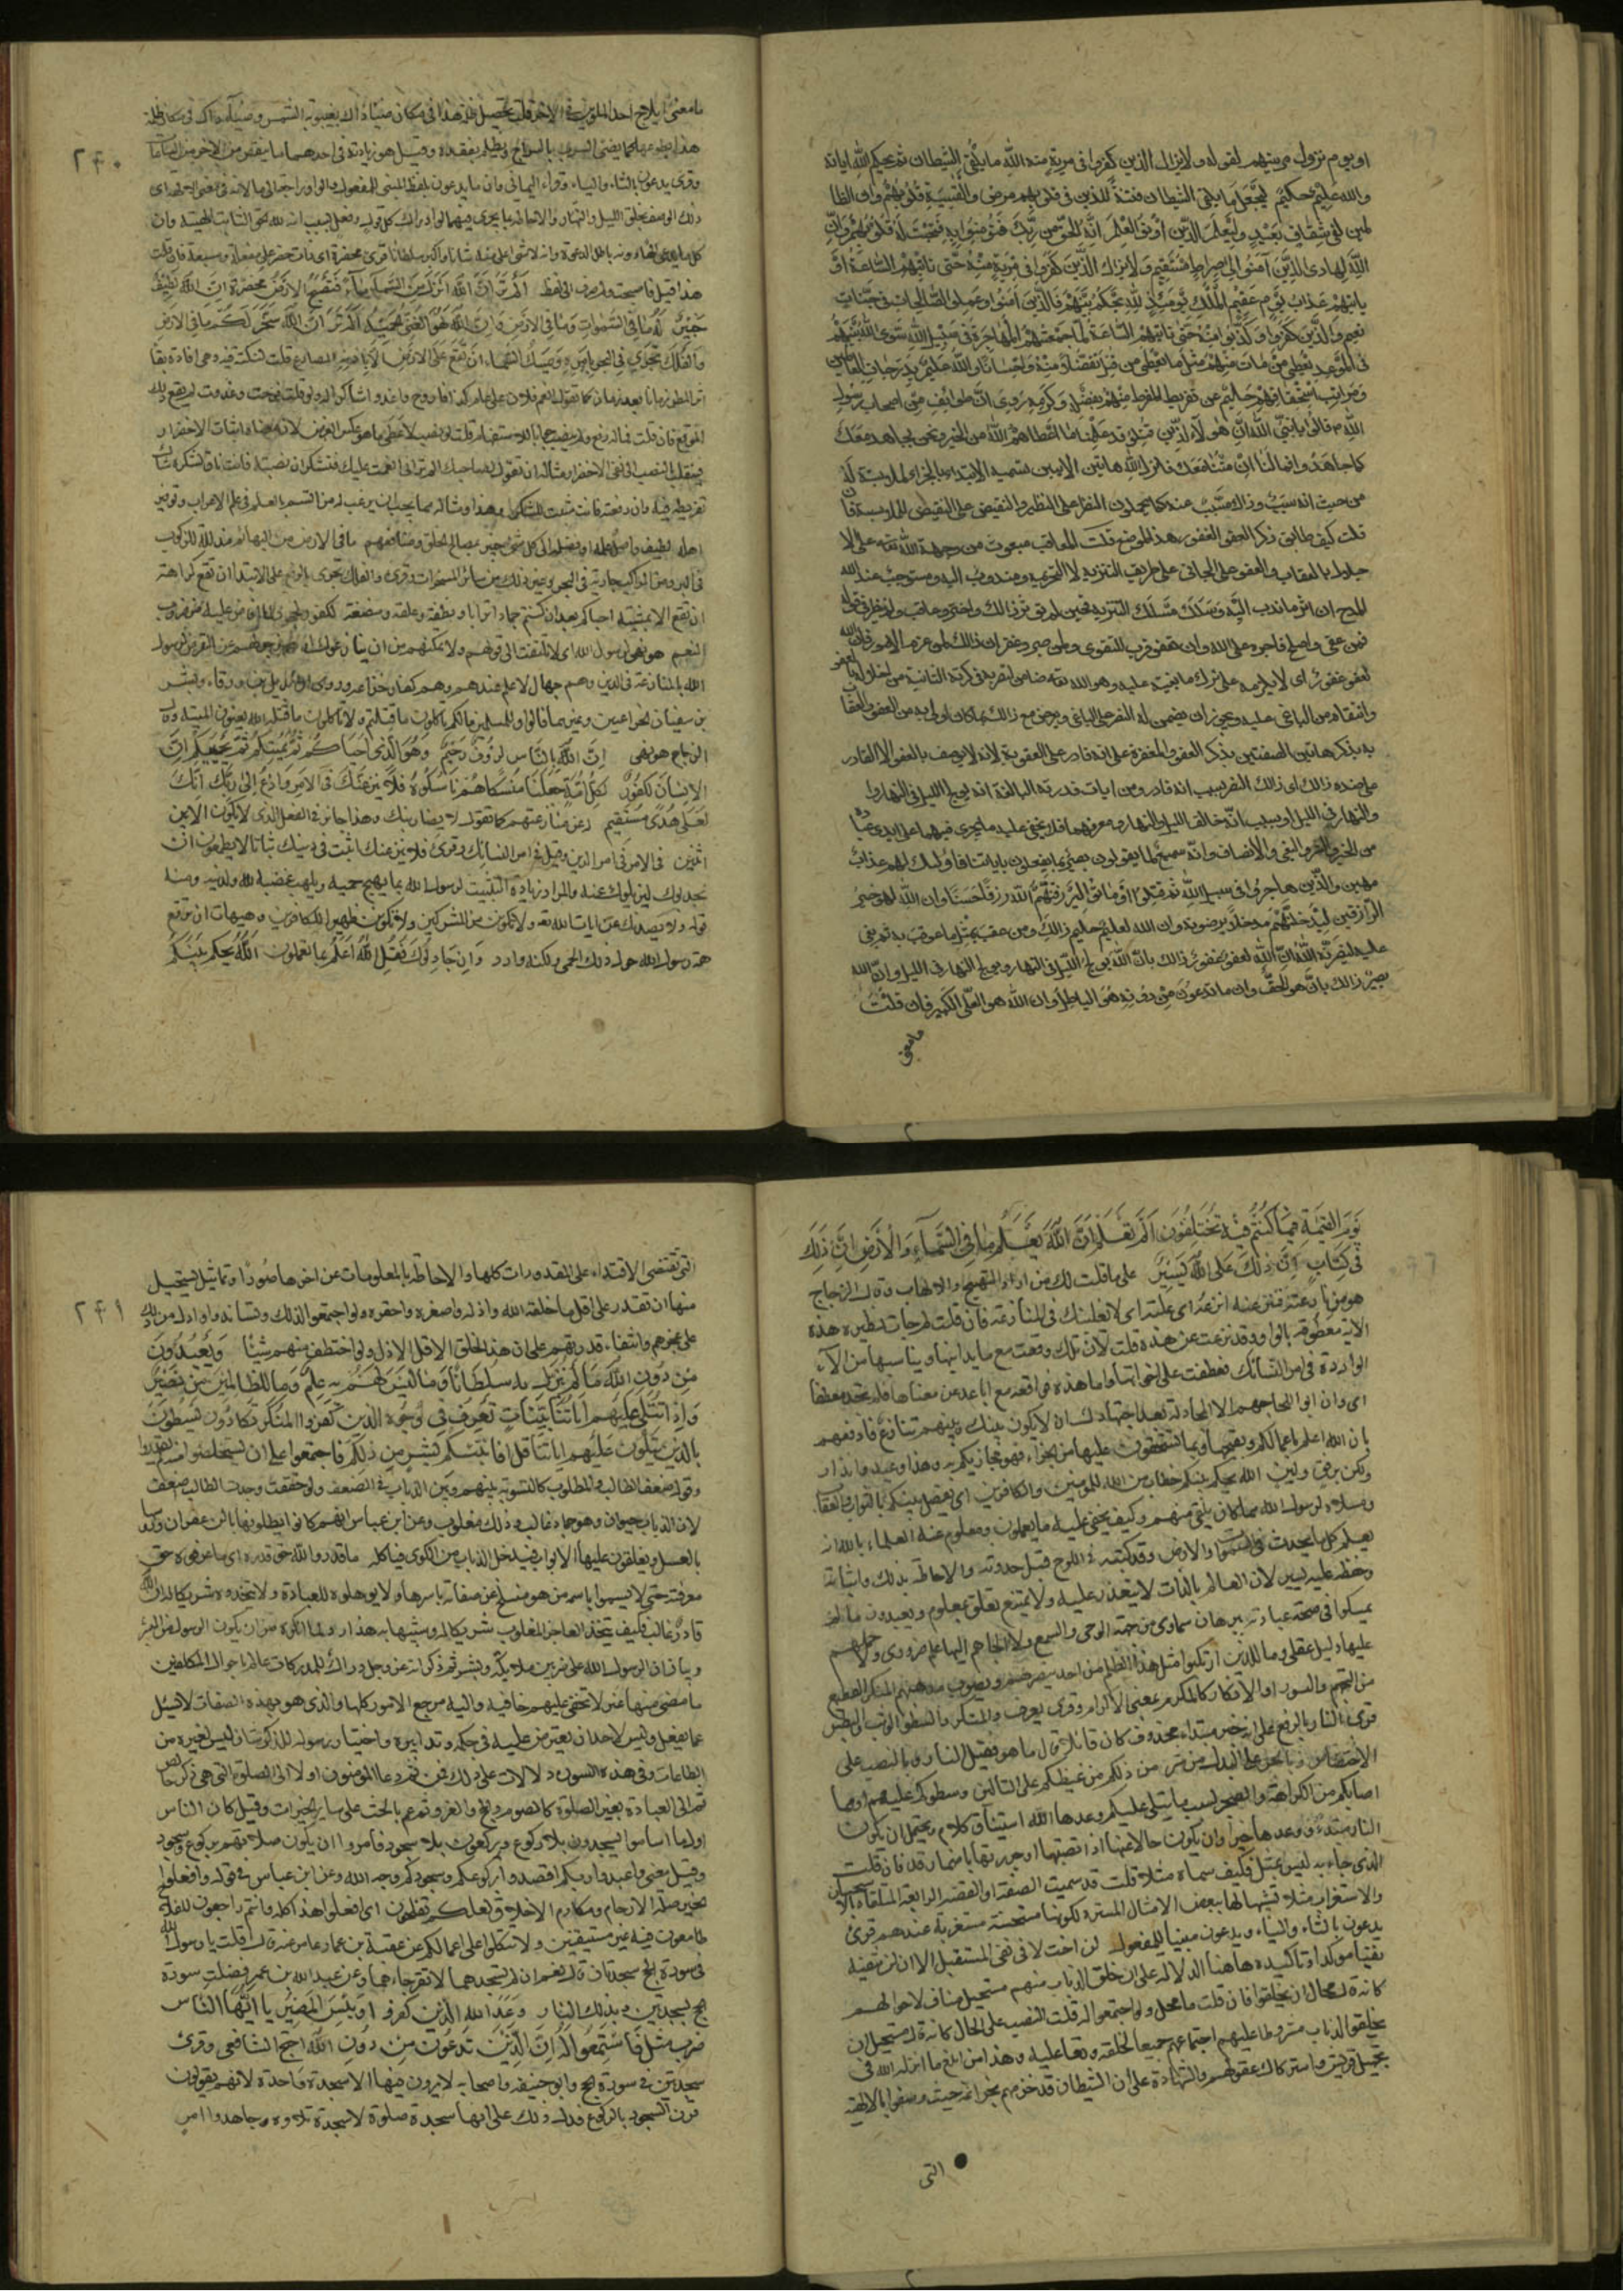 او يوم نزول مرسيتهم لقوله ولا يزال الذين كفروا في مرية منه الله ما يلقي الشيطان ثم يحكم الله اياته
والله عليم حكيم ليجعل ما يلقي الشيطان فتنة للذين في قلوبهم مرض والقسية قلوبهم وان الظا
لمين لفي شقاق بعيد وليعلم الذين اوتوا العلم انه الحق من ربك فيؤمنوا به فتخبت له قلوبهم وان
الله لهادي الذين آمنوا الى صراط مستقيم ولا يزال الذين كفروا في مرية منه حتى تاتيهم الساعة او
ياتيهم عذاب يوم عقيم الملك يومئذ لله يحكم بينهم فالذين امنوا وعملوا الصالحات في جنات
نعيم والذين كفروا وكذبوا لما جمعتهم المهاجرة في سبيل الله سوى الله بينهم
في الموعد يعطي من مات منهم مثل ما يعطي من قتل تفضلا منه واحسانا والله عليم بدرجات العاملين
ومراتب استحقاقهم حليم عن تفريط المفرط منهم بفضله وكرمه روي ان طوايف من اصحاب رسول
الله م قالوا يا نبي الله هولاء الذين قتلوا قد علمنا ما اعطاهم الله من الخير ونحن نجاهد معك
كما جاهدوا فما لنا ان متنا معك فانزل الله هاتين الايتين تسمية الابتداء بالجزاء لملابسته له
من حيث انه سبب وذاك مسبب عنه كما يحملون النظير على النظير والنقيض على النقيض للملابسة فان
قلت كيف طابق ذكر العفو الغفور هذا الموضع قلت المعاقب مبعوث من جهة الله تعه على الا
خلال بالعقاب والعفو على الجاني على طريق التنزيه لا التحريم ومندوب اليه ومستوجب عند الله
المدح ان اثر ما ندب اليه وسلك مسلك التنزيه فحين لم يوثر ذالك وانتصر وعاقب ولم ينظر في قوله
فمن عفى واصلح فاجره على الله وان تعفوا اقرب للتقوى ولمن صبر وغفر ان ذالك لمن عزم الامور فان الله
لعفو غفور اي لا يلومه على ترك ما بعثه عليه وهو الله تعه ضامن لنصره في كرته الثانية من اخلاله بالعفو
وانتقامه من الباغي عليه ويجوز ان يضمن له النصر على الباغي ويعرض مع ذالك بما كان اولى به من العفو
به بذكر هاتين الصفتين بذكر العفو والمغفرة على انه قادر على العقوبة لانه لا يوصف بالعفو الا القادر
على ضده ذالك اي ذالك النصر بسبب انه قادر ومن ايات قدرته البالغة انه يولج الليل في النهار
والنهار في الليل او بسبب انه خالق الليل والنهار ومصرفهما فلا يخفى عليه ما يجري فيهما على ايدي عباده
من الخير والشر والبغي والانصاف وانه سميع لما يقولون بصير بما يفعلون باياتنا فاولئك لهم عذاب
مهين والذين هاجروا في سبيل الله ثم قتلوا او ماتوا ليرزقنهم الله رزقا حسنا وان الله لهو خير
الرازقين ليدخلنهم مدخلا يرضونه وان الله لعليم حليم ذالك ومن عاقب بمثل ما عوقب به ثم بغي
عليه لينصرنه الله ان الله لعفو غفور ذالك بان الله يولج الليل في النهار ويولج النهار في الليل وان الله
بصير ذالك بان هو الحق وان ما تدعون من دونه هو الباطل وان الله هو العلي الكبير فان قلت
ما معنى
٢٤٠
ما معنى ايلاج احد الملوين في الاخر قلت تحصيل ظلمة هذا في مكان ضياء ذاك بغيبوبة الشمس وضياء ذاك في مكان ظلمة
هذا بطلوعها كما يضئ السرب بالسراج ويظلم بفقده وقيل هو زيادته في احدهما ما ينقص من الاخر من الساعات
وقرئ يدعون بالتاء والياء وقراء اليماني وان ما يدعون بلفظ المبنى للمفعول والواو راجعة الى ما لانه في معنى الالهة اي
ذلك الوصف بخلق الليل والنهار والاحاطة بما يجري فيهما وادراك كل قول وفعل بسبب انه الله الحق الثابت الهيته وان
كل ما يدعى الها دونه باطل الدعوة وانه لا شئ اعلى منه شانا واكبر سلطانا قرئ مخضرة اي ذات خضر على مفعلة كمبقلة ومسبعة فان قلت
هذا قيل فاصبحت ولم صرف الى لفظ الم تر ان الله انزل من السماء ماء فتصبح الارض مخضرة ان الله لطيف
خبير له ما في السموات وما في الارض وان الله لهو الغني الحميد الم تر ان الله سخر لكم ما في الارض
والفلك تجري في البحر بامره ويمسك السماء ان تقع على الارض الا باذنه المضارع قلت لنكتة فيه وهي افادة بقاء
اثر المطر زمانا بعد زمان كما تقول انعم علي فلان عام كذا فاروح واغدو شاكرا له ولو قلت فرحت وغدوت لم يقع ذلك
الموقع فان قلت فما له رفع ولم ينصب جوابا للاستفهام قلت لو نصب لاعطى ما هو عكس الغرض لان معناه اثبات الاخضرار
فينقلب بالنصب الى نفي الاخضرار مثاله ان تقول لصاحبك الم تر اني انعمت عليك فتشكر ان نصبته فانت ناف لشكره شاك
تفريطه فيه وان رفعته فانت مثبت للشكر وهذا وامثاله مما يجب ان يرغب له من اتسم بالعلم في علم الاعراب وتوقير
اهله لطيف واصل علمه او فضله الى كل شئ خبير بمصالح الخلق ومنافعهم ما في الارض من البهائم مذللة للركوب
في البر ومن المراكب جارية في البحر وغير ذلك من سائر المسخرات وقرئ والفلك تجري بالرفع على الابتداء ان تقع كراهة
ان تقع الا بمشيته احياكم بعد ان كنتم جمادا ترابا ونطفة وعلقة ومضغة لكفور
الله بالمنازعة في الدين وهم جهال لا علم عندهم وهم كفار خزاعة وروي ان بديل بن ورقاء وبشر
بن سفيان الخزاعيين وغيرهما قالوا للمسلمين ما لكم تاكلون ما قتلتم ولا تاكلون ما قتله الله يعنون الميتة وقال
الزجاج هو نهي ان الله بالناس لرؤف رحيم وهو الذي احياكم ثم يميتكم ثم يحييكم ان
الانسان لكفور لكل امة جعلنا منسكا هم ناسكوه فلا ينازعنك في الامر وادع الى ربك انك
لعلى هدى مستقيم عن منازعتهم كما تقول لا يضاربنك وهذا جائز في الفعل الذي لا يكون الا بين
اثنين في الامر في امر الدين وقيل في امر النسائك وقرئ فلا ينزعنك اثبت في دينك ثباتا لا يطمعون ان
يجذبوك ليزيلوك عنه والمراد زيادة التثبيت لرسول الله بما يهيج حميته ويلهب غضبه لله ولدينه ومنه
قوله ولا يصدنك عن ايات الله ولا تكونن من المشركين ولا تكونن ظهيرا للكافرين وهيهات ان ترتع
همة رسول الله حول ذلك الحمى ولكنه وارد وان جادلوك فقل الله اعلم بما تعملون الله يحكم بينكم
يوم القيمة فيما كنتم فيه تختلفون الم تعلم ان الله يعلم ما في السماء والارض ان ذلك
في كتاب ان ذلك على الله يسير على ما قلت لك من ارادة التهييج والالهاب وقال الزجاج
هو من نازعته فنزعته انزعه اي غلبته اي لا يغلبنك في المنازعة فان قلت لم جاءت نظيرة هذه
الاية معطوفة بالواو وقد نزعت عن هذه قلت لان تلك وقعت مع ما يدانيها ويناسبها من الآي
الواردة في امر النسائك فعطفت على اخواتها واما هذه فواقعة مع اباعد عن معناها فلم تجد معطفا
اي وان ابوا للجاجهم الا المجادلة بعد اجتهادك ان لا يكون بينك وبينهم تنازع فادفعهم
بان الله اعلم باعمالكم وبقبحها وبما تستحقون عليها من الجزاء فهو مجازيكم به وهذا وعيد وانذار
ولكن برفق ولين الله يحكم بينكم خطاب من الله للمومنين والكافرين اي يفصل بينكم بالثواب والعقاب
ومسلاة لرسول الله مما كان يلقى منهم وكيف يخفى عليه ما يعملون ومعلوم عند العلماء بالله انه
يعلم كل ما يحدث في السموات والارض وقد كتبه في اللوح قبل حدوثه والاحاطة بذلك واثباته
وحفظه عليه يسير لان العالم بالذات لا يتعذر عليه ولا يمتنع تعلق بمعلوم ويعبدون ما لم
يتمسكوا في صحة عبادته ببرهان سماوي من جهة الوحي والسمع ولا الجاهم اليها علم ضروري ولا حملهم
عليها دليل عقلي وما للذين ارتكبوا مثل هذا الظلم من احد ينصرهم ويصوب مذهبهم المنكر الفظيع
من التجهم والبسور او الانكار كالمكرم بمعنى الاكرام وقرئ يعرف والمنكر والسطو الوثب والبطش
قرئ النار بالرفع على انه خبر مبتداء محذوف كان قائلا قال ما هو فقيل النار وبالنصب على
الاختصاص وبالجر على البدل من شر من ذلكم من غيظكم على التالين وسطوكم عليهم او مما
اصابكم من الكراهة والضجر بسبب ما يتلى عليكم وعدها الله استيناف كلام ويحتمل ان يكون
النار مبتدء ووعدها خبرا وان يكون حالا عنها اذا نصبتها او جررتها باضمار قد فان قلت
الذي جاء به ليس بمثل فكيف سماه مثلا قلت قد سميت الصفة او القصة الرايعة المتلقاة بالاستحسان
والاستغراب مثلا تشبيها لها ببعض الامثال المسيرة لكونها مستحسنة مستغربة عندهم قرئ
يدعون بالتاء والياء ويدعون مبنيا للمفعول لن اخت لا في نفي المستقبل الا ان لن تنفيه
نفيا موكدا وتاكيده هاهنا الدلالة على ان خلق الذباب منهم مستحيل مناف لاحوالهم
كانه قال محال ان يخلقوا فان قلت ما محل ولو اجتمعوا له قلت النصب على الحال كانه قال مستحيل ان
يخلقوا الذباب مشروطا عليهم اجتماعهم جميعا لخلقه وتعاونهم عليه وهذا من ابلغ ما انزله الله في
تجهيل قريش واستركاك عقولهم والشهادة على ان الشيطان قد خزمهم بخزائمه حيث وصفوا بالالهية
التي
٢٤١
التي تقتضي الاقتدار على المقدورات كلها والاحاطة بالمعلومات عن اخرها صورا وتماثيل يستحيل
منها ان تقدر على اقل ما خلقه الله واذله واصغره واحقره ولو اجتمعوا لذلك وتساندوا وادل من ذلك
على عجزهم وانتفاء قدرتهم على ان هذا الخلق الاقل الاذل لو اختطف منهم شيئا ويعبدون
من دون الله ما لم ينزل به سلطانا وما ليس لهم به علم وما للظالمين من نصير
واذا تتلى عليهم آياتنا بينات تعرف في وجوه الذين كفروا المنكر يكادون يسطون
بالذين يتلون عليهم اياتنا قل افانبئكم بشر من ذلكم فاجتمعوا على ان يستخلصوه منه لم يقدروا
وقوله ضعف الطالب والمطلوب كالتسوية بينهم وبين الذباب في الضعف ولو حققت وجدت الطالب اضعف
لان الذباب حيوان وهو جماد غالب وذلك مغلوب وعن ابن عباس انهم كانوا يطلونها بالزعفران ورؤسها
بالعسل ويغلقون عليها الابواب فيدخل الذباب من الكوى فياكله ما قدروا الله حق قدره اي ما عرفوه حق
معرفته حتى لا يسموا باسمه من هو منسلخ عن صفاته باسرها ولا يوهلوه للعبادة ولا يتخذوه شريكا له ان الله
قادر غالب فكيف يتخذ العاجز المغلوب شريكا له وشبيها به هذا رد لما انكروه من ان يكون الرسول من البشر
وبيان ان الرسول الله على ضربين ملايكة وبشر ثم ذكر انه عز وجل دراك للمدركات عالم باحوال المكلفين
ما مضى منها وما غبر لا تخفى عليهم خافية واليه مرجع الامور كلها والذي هو بهذه الصفات لا يسئل
عما يفعل وليس لاحد ان يعترض عليه في حكمه وتدابيره واختيار رسوله للذكر شان ليس لغيره من
الطاعات وفي هذه السورة دلالات على ذلك فمن ثم دعا المومنون اولا الى الصلوة التي هي ذكر خالص
ثم الى العبادة بغير الصلوة كالصوم والحج والغزو ثم عم بالحث على ساير الخيرات وقيل كان الناس
اول ما اسلموا يسجدون بلا ركوع ويركعون بلا سجود فامروا ان يكون صلاتهم بركوع وسجود
وقيل معنى واعبدوا ربكم اقصدوا بركوعكم وسجودكم وجه الله وعن ابن عباس في قوله وافعلوا
الخير صلة الارحام ومكارم الاخلاق لعلكم تفلحون اي افعلوا هذا كله وانتم راجعون للفلاح
طامعون فيه غير مستيقنين ولا تتكلوا على اعمالكم عن عقبة بن عامر رضي عنه قال قلت يا رسول الله
في سورة الحج سجدتان قال نعم ان لم تسجدهما فلا تقرءهما وعن عبد الله بن عمر فضلت سورة
الحج بسجدتين وبذلك النار وعدها الله الذين كفروا وبئس المصير يا ايها الناس
ضرب مثل فاستمعوا له ان الذين تدعون من دون الله احتج الشافعي وقرئ
سجدتين في سورة الحج وابو حنيفه واصحابه لا يرون فيها الا سجدة واحدة لانهم يقولون
قرن السجود بالركوع فدل ذلك على انها سجدة صلوة لا سجدة تلاوة وجاهدوا امر